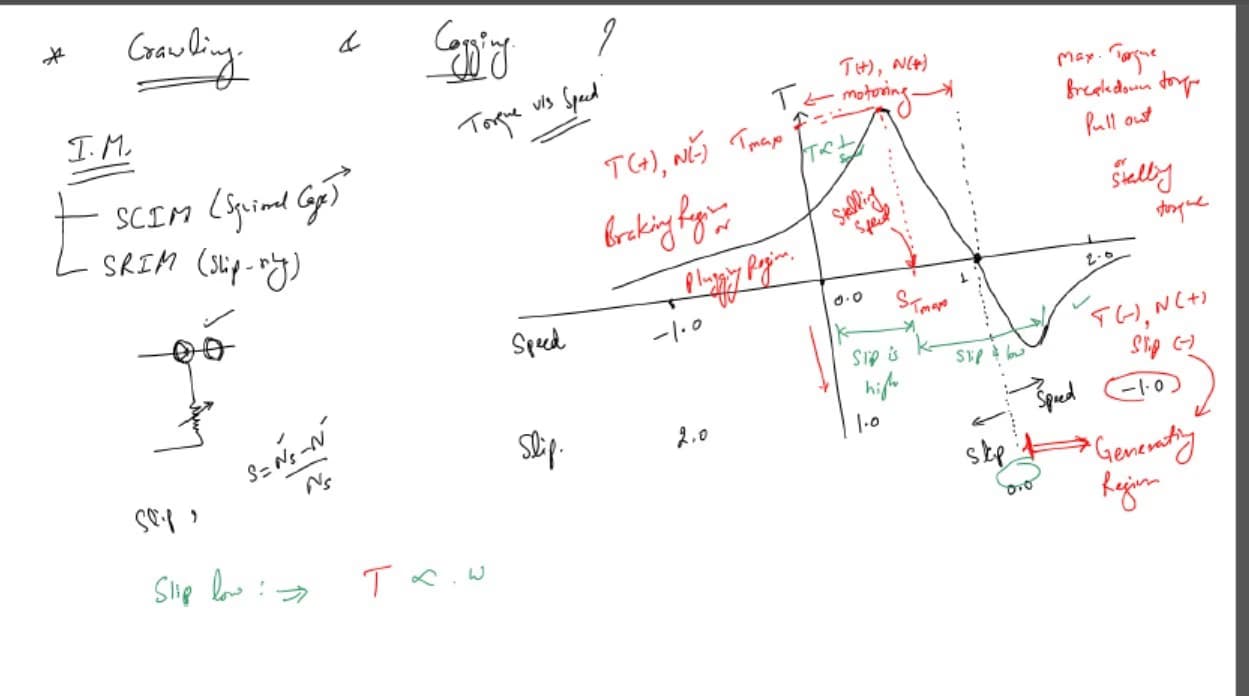 * Crawling & Cogging ?
Torque v/s Speed
I.M.
SCIM (Squirrel Cage)
SRIM (Slip-ring)
S = Ns - N
Ns
Slip,
Slip low : ⇒ T ∝ . w
T
T(+), N(+)
motoring
Tmax
T ∝ 1
T(+), N(-)
Braking Region
or
Plugging Region.
Stalling
Speed
Max. Torque
Breakdown torque
Pull out
or
Stalling
torque
Speed
-1.0
0.0
STmax
1
2.0
Slip is
high
Slip is low
T(-), N(+)
Slip (-)
-1.0
Speed
Slip
0.0
Generating
Region
Slip.
2.0
1.0